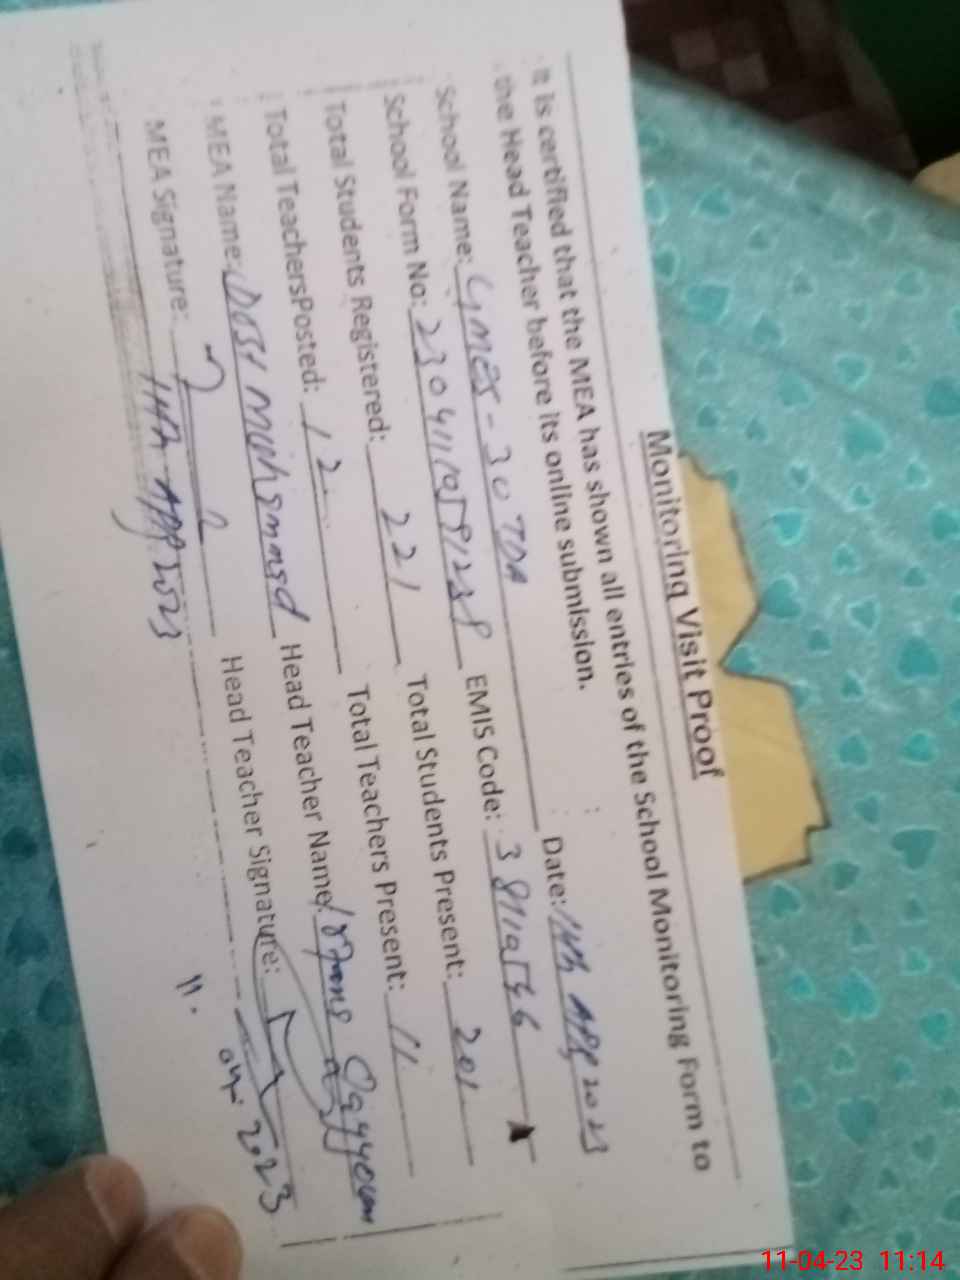 Monitoring Visit Proof
It is certified that the MEA has shown all entries of the School Monitoring Form to
the Head Teacher before its online submission.
School Name: GMES-30 TDA Date: 11th APR 2023
School Form No: EMIS Code:
Total Students Registered: 221 Total Students Present: 201
Total TeachersPosted: 12 Total Teachers Present: 11
MEA Name: Dost Muhammad Head Teacher Name: Qayyoum
MEA Signature: Head Teacher Signature:
11th APR 2023
11. 04. 2023
11-04-23 11:14